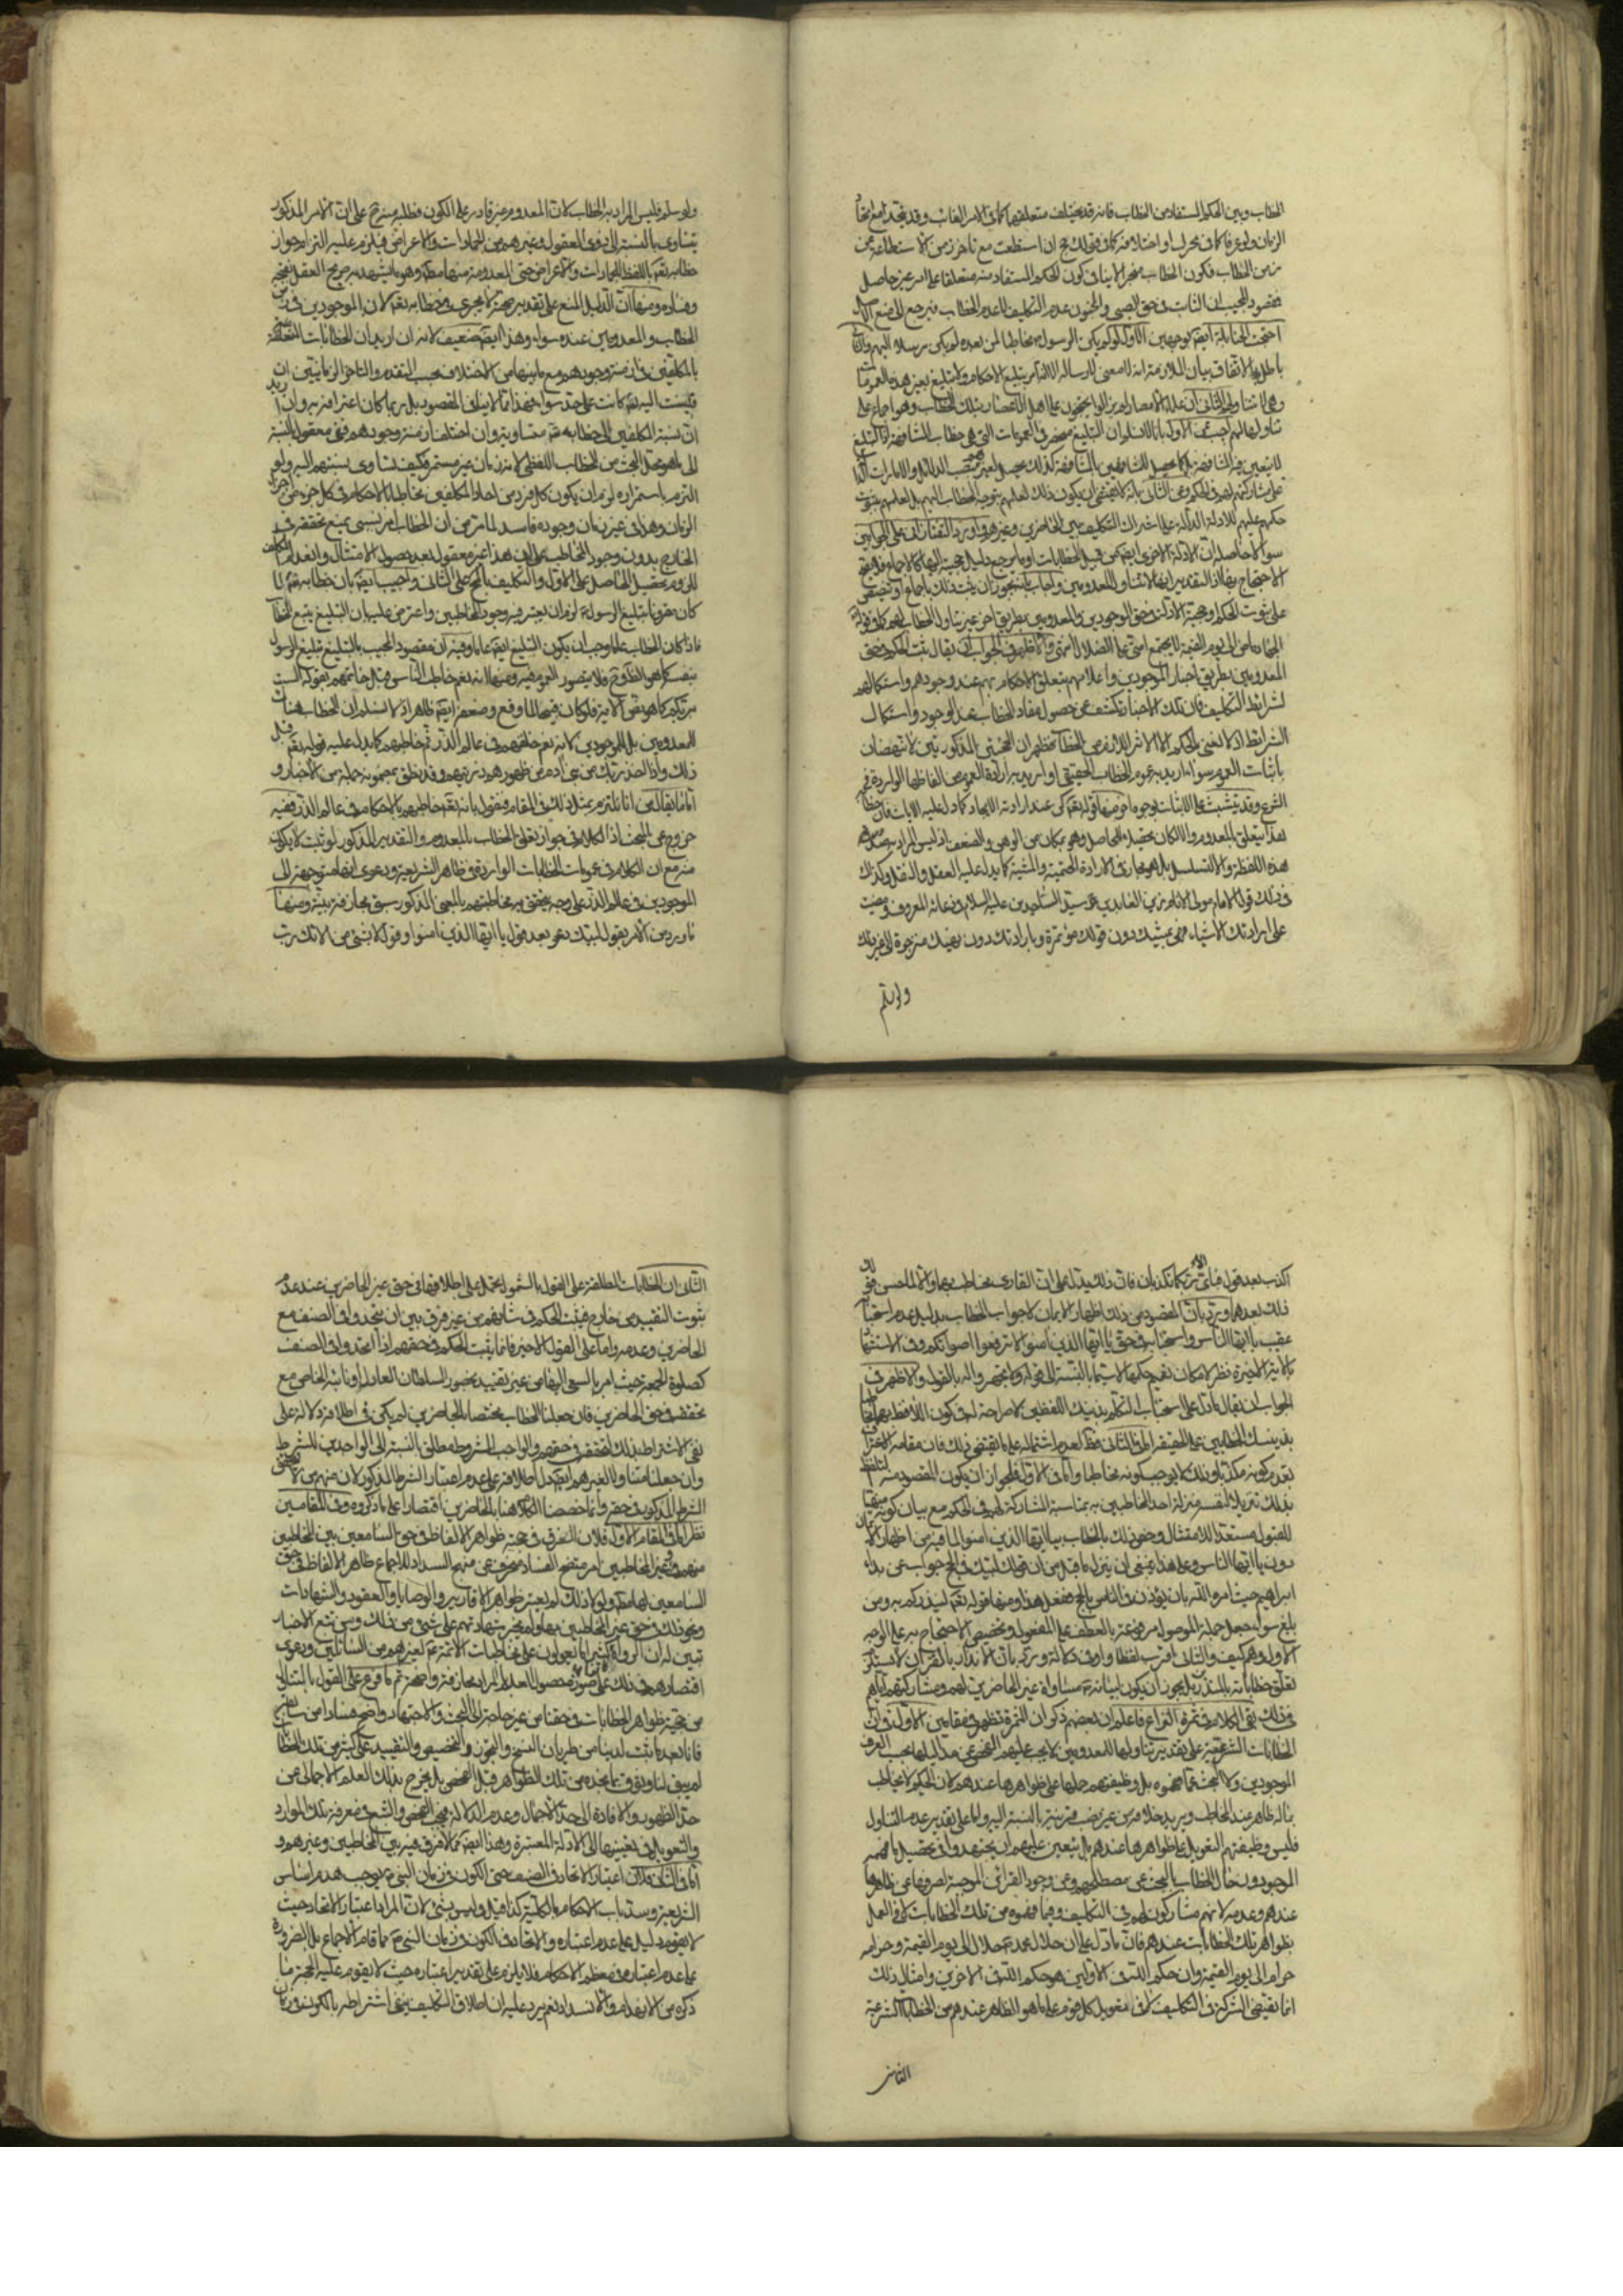 الخطاب وبين الحكم المستفاد من الخطاب فانه قد يختلف متعلقهما كما فى الامر الغائب وقد يتحد مع اتحاد
الزمان ولو عرفا كما فى تحرك او اختلافه كما فى قولك حج ان استطعت مع تاخر زمن الاستطاعة عن
زمن الخطاب فكون الخطاب منجزا لا ينافى كون الحكم المستفاد منه متعلقا على امر غير حاصل
فمقصود المجيب ان الثابت فى حق الصبى والمجنون عدم التكليف لا عدم الخطاب فيرجع الى منع
احتجت الحنابلة ايضا بوجهين الاول لو لم يكن الرسول مخاطبا لمن بعده لم يكن مرسلا اليهم والتالى
باطل بالاتفاق بيان الملازمة انه لا معنى للرسالة الا ان يؤمر بتبليغ الاحكام ولا تبليغ بغير هذه العمومات
وهى لا تتناولهم الثانى ان علماء الامصار لم يزالوا يحتجون على اهل الاعصار بتلك الخطاب وهو اجماع على
تناولها لهم اجيب عن الاول بانا لا نسلم ان التبليغ منحصر فى العمومات التى هى خطاب المشافهة اذ التبليغ
لا يتعين فيه المشافهة بل كما يحصل للمشافهين بالمشافهة كذلك يحصل لغيرهم بنصب الدلائل والامارات
على مشاركتهم لهم فى الحكم وعن الثانى بانه لا يقتضى ان يكون ذلك لعلمهم بتوجه الخطاب اليهم بل لعلمهم بثبوت
حكمه عليهم للادلة الدالة على اشتراك التكليف بين الحاضرين وغيرهم واورد التفتازانى على الجوابين
سؤالا حاصله ان الادلة الاخرى ايضا من قبيل الخطابات او ما يرجع دليل حجيته اليها كالاجماع فلا يتم
الاحتجاج بها اذ التقدير انها لا تتناول المعدومين واجاب بانه يجوز ان يثبت ذلك باجماع او تنصيص
على ثبوت الحكم وحجية الادلة فى حق الموجودين والمعدومين بطريق اخر غير تناول الخطاب لهم كما فى قوله
الجهاد ماض الى يوم القيمة لا يجتمع امتى على الضلال انتهى والاظهر فى الجواب ان يقال ثبت الحكم فى حق
المعدومين بطريق اخبار الموجودين واعلامهم بتعلق الاحكام بهم عند وجودهم واستكمالهم
لشرائط التكليف فان تلك الاخبار تكشف عن حصول مفاد الخطاب عند الوجود واستكمال
الشرائط اذ لا نعنى بالحكم الا الاثر اللازم من الخطاب فظهر ان الحجتين المذكورتين لا تنهضان
باثبات العموم سواء اريد به عموم الخطاب الحقيقى او اريد به ارادة العموم من الفاظها الواردة فى
الشرع وقد يتشبث على الاثبات بوجوه اخر منها قوله تعالى كن عند ارادته الايجاد كما دل عليه الايات فان
هذا يتعلق بالمعدوم والا لكان تحصيلا للحاصل وهو بمكان من الوهن والضعف اذ ليس المراد به صدور
هذه اللفظة والا لتسلسل بل هو مجاز فى الارادة الحتمية والمشية كما يدل عليه العقل والنقل وكذلك
فى ذلك قول الامام مولى الانام زين العابدين سيد الساجدين عليه السلام فى دعائه المعروف ومضت
على ارادتك الاشياء فهى بمشيتك دون قولك مؤتمرة وبارادتك دون نهيك منزجرة الى غير ذلك
ولو سلم
ولو سلم فليس المراد به الخطاب لان المعدوم غير قادر على الكون فطلبه منه قبيح على ان الامر المذكور
يتساوى بالنسبة الى ذوى العقول وغيرهم من الجمادات والاعراض فيلزم عليه التزام جواز
خطابه تعالى باللفظ للجمادات والاعراض حتى المعدومة منها وهو ما يشهد صريح العقل بقبحه
وفساده ومنها ان الدليل المنع على تقدير صحته لا يجرى فى خطابه تعالى لان الموجودين فى زمن
الخطاب والمعدومين عنده سواء وهذا ايضا ضعيف لانه ان اريد ان الخطابات المتعلقة
بالمكلفين فى ازمنة وجودهم مع ما بينها من الاختلاف بحسب التقدم والتاخر الزمانيين ان
قيست اليه تعالى كانت على حد سواء فهذا مما لا ينافى المقصود بل ربما كان اعترافا به وان اريد
ان نسبة المكلفين الى خطابه تعالى متساوية وان اختلف ازمنة وجودهم فغير معقول بالنسبة
الى ما هو محل البحث من الخطاب اللفظى لانه زمانى غير مستمر فكيف تتساوى نسبتهم اليه ولو
التزم باستمراره لزم ان يكون كل فرد من احاد المكلفين مخاطبا بالاحكام فى كل جزء من اجزاء
الزمان وهذا فى غير زمان وجوده فاسد لما مر من ان الخطاب امر نسبى يمتنع تحققه فى
الخارج بدون وجود المخاطب على ان هذا غير معقول بعد حصول الامتثال وانعدام المكلف
للزوم تحصيل الحاصل على الاول والتكليف بالمحال على الثانى واجيب ايضا بان خطابه تعالى لما
كان مقرونا بتبليغ الرسول لزم ان يعتبر فيه وجود المخاطبين واعترض عليه بان التبليغ يتبع الخطاب
فاذا كان الخطاب عاما وجب ان يكون التبليغ ايضا عاما وفيه ان مقصود المجيب بالتبليغ تبليغ الرسول
بنفسه كما هو الظاهر فلا يتصور العموم فيه ومنها انه تعالى خاطب الناس قبل خلقهم بقوله الست
بربكم كما هو نص الاية فلو كان قبيحا لما وقع وضعفه ايضا ظاهر اذ لا نسلم ان الخطاب هناك
للمعدومين بل للموجودين لانه تعالى خلقهم فى عالم الذر ثم خاطبهم كما يدل عليه قوله تعالى قبل
ذلك واذ اخذ ربك من بنى ادم من ظهورهم ذريتهم وقد نطق بمضمونه جملة من الاخبار و
اما ما يقال من انا نلتزم بمثل ذلك فى المقام ونقول بانه تعالى خاطبهم بالاحكام فى عالم الذر ففيه
خروج عن المبحث اذ الكلام فى جواز تعلق الخطاب بالمعدوم والتقدير المذكور لو ثبت لا يكون
منه مع ان الكلام فى عمومات الخطابات الواردة فى ظاهر الشريعة ودعوى انها متوجهة الى
الموجودين فى عالم الذر على وجه يتحقق به مخاطبتهم بالمعنى المذكور سابقا مجازفة بينة ومنها
ما ورد من الامر بقول لبيك ندعو بعد قول يا ايها الذين امنوا وقول لا بشئ من الائك رب
اكذب بعد قول فباى الاء ربكما تكذبان فان ذلك يدل على ان القارى مخاطب بهما والا لما حسن منه
ذلك بعدهما ويرد بان المقصود من ذلك اظهار الايمان لا جواب الخطاب بدليل عدم استحبابه
عقيب يا ايها الناس واستحبابه فى حق يا ايها الذين امنوا لا ترفعوا اصواتكم وفى الاستشهاد
بالاية الاخيرة نظر لامكان تعميم حكمها لا سيما بالنسبة الى قوله ولا تجهروا له بالقول والاظهر فى
الجواب ان يقال ما دل على استحباب التكلم بذينك اللفظين لا صراحة له فى كون اللافظ بهما مخاطبا
بذينك الخطابين على الحقيقة اما فى الثانى فظ لعدم اشتماله على ما يقتضى ذلك فان مقامه الاعتراف
بعدم كونه مكذبا وذلك لا يوجب كونه مخاطبا واما فى الاول فلجواز ان يكون المقصود منه التلفظ
بذلك تنزيلا لنفسه منزلة احد المخاطبين به بمناسبة المشاركة لهم فى الحكم مع بيان كونه متهيئا
للقبول مستعدا للامتثال وخص ذلك بالخطاب بيا ايها الذين امنوا لما فيه من اظهار الايمان
دون يا ايها الناس وعلى هذا ينبغى ان ينزل ما قيل من ان قولك لبيك فى الحج جواب عن نداء
ابراهيم حيث امره الله بان يؤذن فى الناس بالحج ففعل هذا ومنها قوله تعالى لينذركم به ومن
بلغ سواء جعل جملة الموصول مرفوعة بالعطف على المفعول وتخصيص الاحتجاج به على الوجه
الاول وهم كيف والثانى اقرب لفظا واوفى دلالة ويرد بان الانذار بالقران لا يستلزم
تعلق خطاباته بالمنذر بل يجوز ان يكون لبيانه مساواة غير الحاضرين لهم ومشاركتهم اياهم
فى ذلك بقى الكلام فى ثمرة النزاع فاعلم ان بعضهم ذكر ان الثمرة تظهر فى مقامين الاول ان
الخطابات الشرعية على تقدير تناولها للمعدومين لا يجب عليهم الفحص عن مداليلها بحسب العرف
الموجودين ولا البحث عما فهموه بل وظيفتهم حملها على ظواهرها عندهم لان الحكيم لا يخاطب
بماله ظاهر عند المخاطب ويريد خلافه من غير نصب قرينة بالنسبة اليه واما على تقدير عدم التناول
فليس وظيفتهم التعويل على ظواهرها عندهم بل يتعين عليهم ان يجتهدوا فى تحصيل ما فهمه
الموجودون حال الخطاب بالبحث عن مصطلحهم وعن وجود القرائن الموجبة لصرفها عن ظاهرها
عندهم وعدمه لانهم مشاركون لهم فى التكليف وفيما فهموه من تلك الخطابات لا فى العمل
بظواهر تلك الخطابات عندهم فان ما دل على ان حلال محمد حلال الى يوم القيمة وحرامه
حرام الى يوم القيمة وان حكم الله فى الاولين هو حكم الله فى الاخرين وامثال ذلك
انما يقتضى الشركة فى التكليف لا فى تعويل كل قوم على ما هو الظاهر عندهم من الخطابات الشرعية
الثانى
الثانى ان الخطابات المطلقة على القول بالشمول يحمل على اطلاقها فى حق غير الحاضرين عند عدم
ثبوت التقييد من خارج فيثبت الحكم فى شانهم من غير فرق بين ان يتحدوا فى الصنف مع
الحاضرين وعدمه واما على القول الاخير فانما يثبت الحكم فى حقهم اذا اتحدوا فى الصنف
كصلوة الجمعة حيث امر بالسعى اليها من غير تقييد بحضور السلطان العادل او نائبه الخاص مع
تحققه فى حق الحاضرين فان جعلنا الخطاب مختصا بالحاضرين لم يكن فى اطلاقه دلالة على
نفى الاشتراط بذلك لتحققه فى حقهم والواجب المشروط مطلق بالنسبة الى الواجدين للشرط
وان جعلناه متناولا لغيرهم ايضا دل اطلاقه على عدم اعتبار الشرط المذكور لان منهم من لا يتحقق
الشرط المذكور فى حقه وانما خصصنا الكلام هنا بالحاضرين اقتصارا على ما ذكروه وفى المقامين
نظر اما فى المقام الاول فلان الفرق فى حجية ظواهر الالفاظ فى حق السامعين بين المخاطبين
منهم وغير المخاطبين امر متضح الفساد منحرف عن منهج السداد للاجماع ظاهر الالفاظ فى حق
السامعين لها مطلقا ولولا ذلك لم يعتبر ظواهر الاقارير والوصايا والعقود والشهادات
ونحو ذلك فى حق غير المخاطبين بها ولم تجز شهادتهم على شئ من ذلك ومن تتبع الاخبار
تبين له ان الرواة كثيرا ما يعولون على مخاطبات الائمة لغيرهم من السائلين ودعوى
اقتصارهم فى ذلك على صورة حصول العلم لهم بالمراد مجازفة واضحة ثم ما فرع على القول بالتناول
من حجية ظواهر الخطابات فى حقنا من غير حاجة الى البحث والاجتهاد واضح فسادا من سابقه
فانا بعد ما ثبت لدينا من طريان النسخ والتجوز والتخصيص والتقييد على كثير من تلك الخطابات
لم يبق لنا وثوق بما نجده من تلك الظواهر قبل الفحص بل يخرج بذلك العلم الاجمالى عن
حد الظهور والافادة الى حد الاجمال وعدم الدلالة فيجب الفحص والتتبع فى معرفة تلك الموارد
والتعويل فى تعيينها الى الادلة المعتبرة وهذا ايضا مما لا فرق فيه بين المخاطبين وغيرهم و
اما فى الثانى فلان اعتبار الاتحاد فى الصنف حتى الكون فى زمان النبى يوجب هدم اساس
الشريعة وسد باب الاحكام بالكلية كذا قيل وليس بشئ لان المراد اعتبار الاتحاد حيث
لا يقوم دليل على عدم اعتباره والاتحاد فى الكون فى زمان النبى مما قام الاجماع بل الضرورة
على عدم اعتباره فى معظم الاحكام فلا يلزم على تقدير اعتباره حيث لا يقوم عليه الحجة ما
ذكره من الانهدام والانسداد نعم يرد عليه ان اطلاق التكليف ينفى اشتراطه بالكون فى زمان